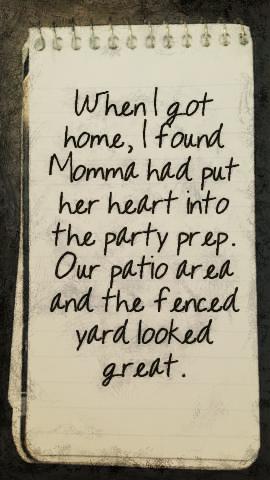 When I got
home, I found
Momma had put
her heart into
the party prep.
Our patio area
and the fenced
yard looked
great.